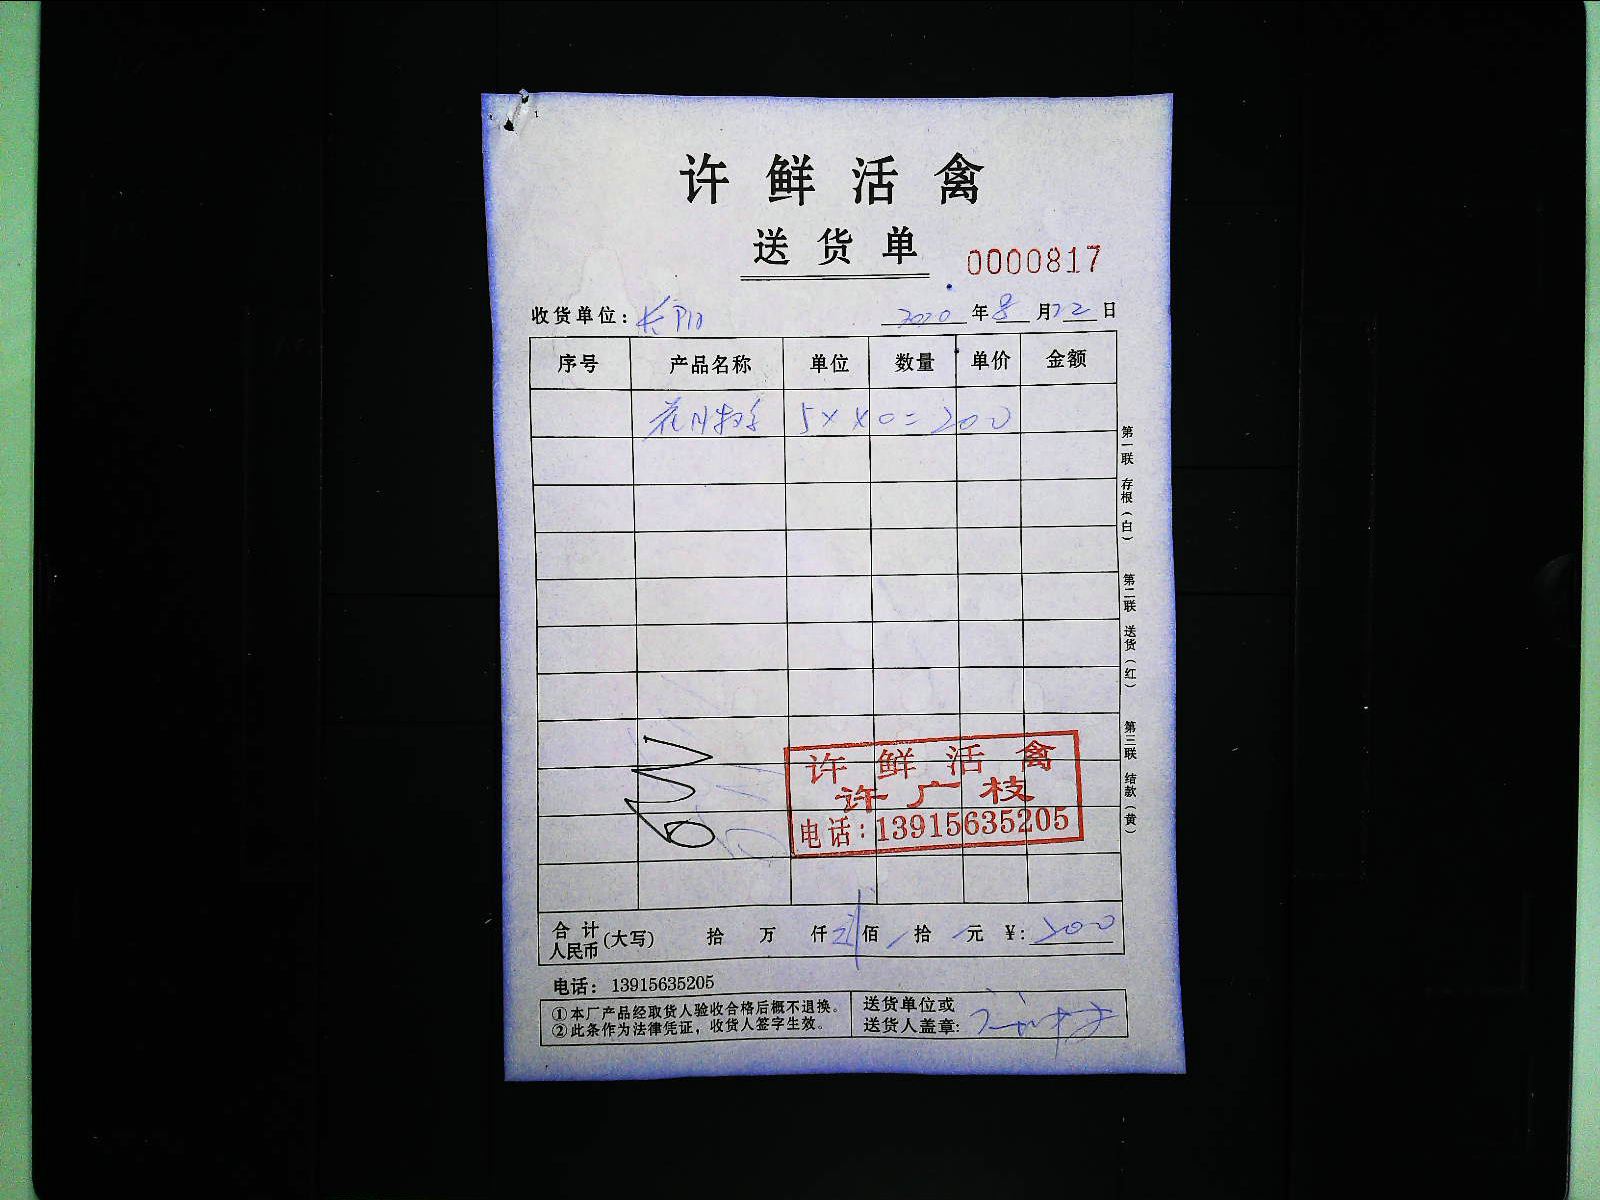 许鲜活禽
送货单 0000817
收货单位: 长阳 2020年8月22日
序号 产品名称 单位 数量 单价 金额
5× 40=200
第一联 存根(白)
第二联 送货(红)
第三联 结款(黄)
许鲜活禽
许广枝
电话:13915635205
合计人民币(大写) 拾 万 仟 贰佰 拾 元 ¥:200
电话: 13915635205
①本厂产品经取货人验收合格后概不退换。
②此条作为法律凭证,收货人签字生效。
送货单位或
送货人盖章: